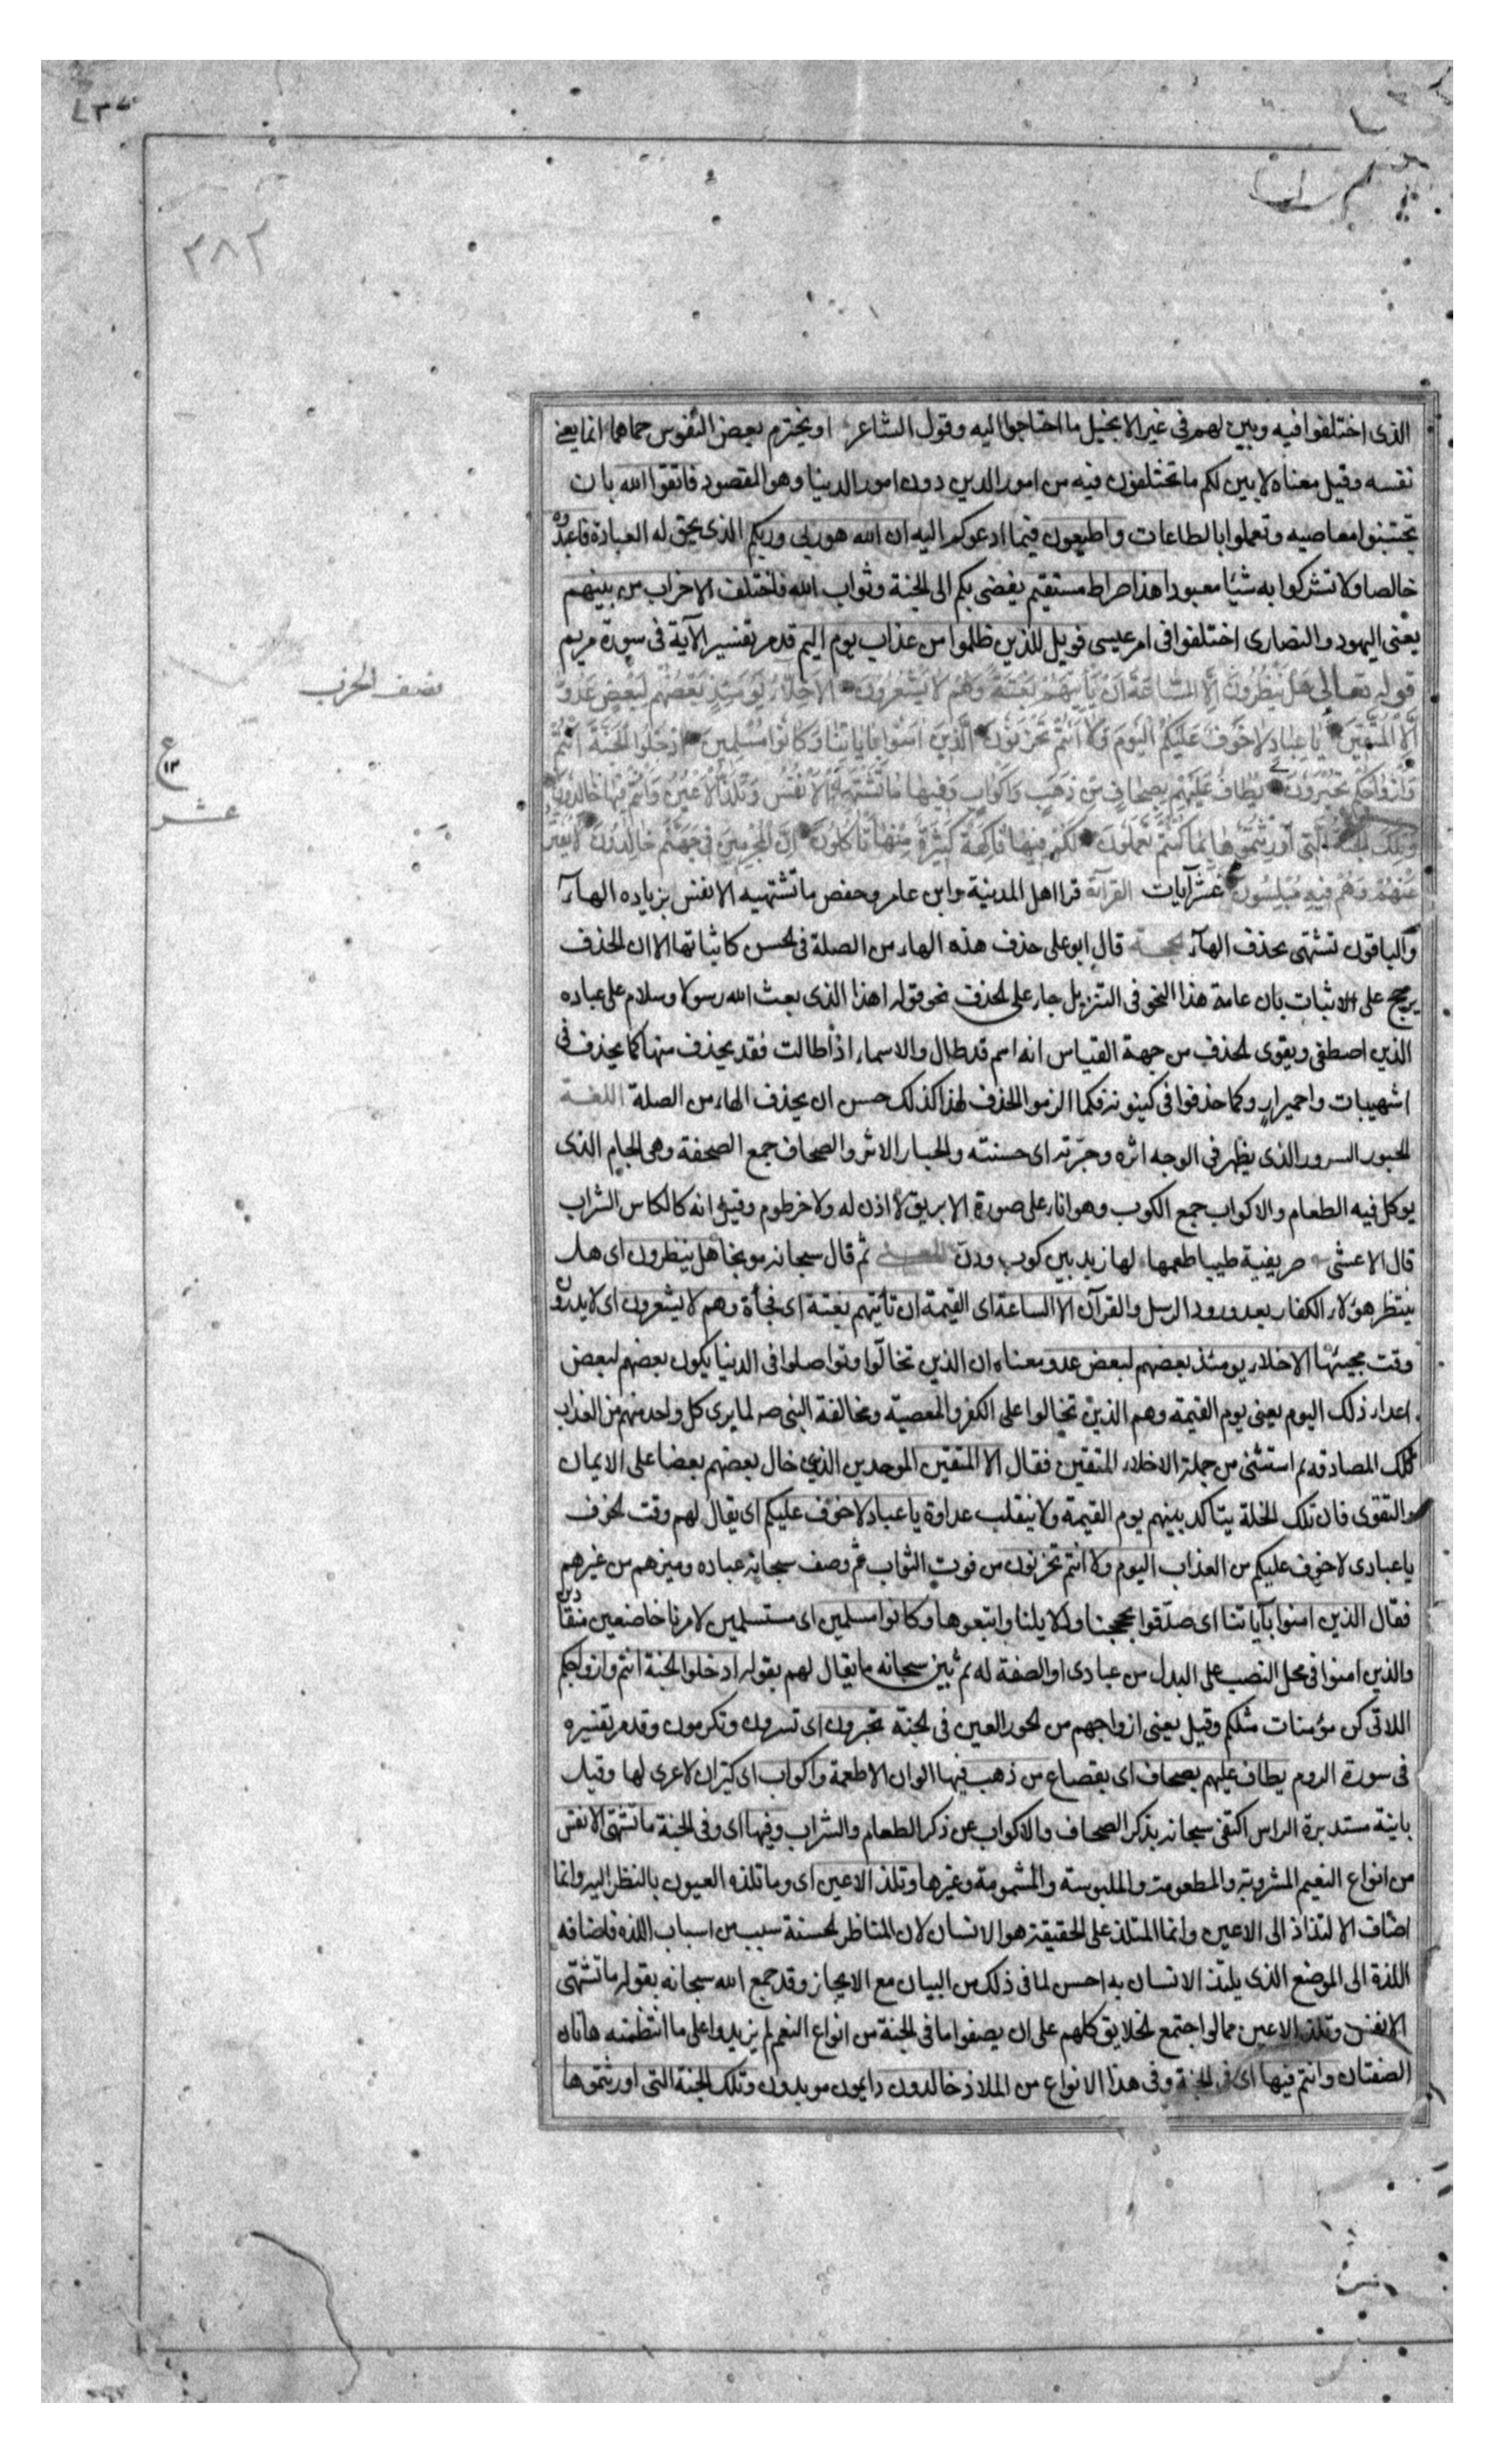 ٢٨٢
الذى اختلفوا فيه وبين لهم فى غير الانجيل ما احتاجوا اليه وقول الشاعر او يخترم بعض النفوس حماها انما يعنى
نفسه وقيل معناه لابين لكم ما تختلفون فيه من امور الدين دون امور الدينا وهو المقصود فاتقوا الله بان
تجتنبوا معاصيه وتعملوا بالطاعات واطيعون فيما ادعوكم اليه ان الله هو ربى وربكم الذى يحق له العبادة فاعبدوه
خالصا ولا تشركوا به شيئا معبودا هذا صراط مستقيم يفضى بكم الى الجنة وثواب الله فاختلف الاحزاب من بينهم
يعنى اليهود والنصارى اختلفوا فى امر عيسى فويل للذين ظلموا من عذاب يوم اليم قد مر تفسير الآية فى سورة مريم
قوله تعالى هَلْ يَنْظُرُونَ اِلَّا السَّاعَةَ اَنْ تَأْتِيَهُمْ بَغْتَةً وَهُمْ لا يَشْعُرُونَ الاَخِلَّاءُ يَوْمَئِذٍ بَعْضُهُمْ لِبَعْضٍ عَدُوٌّ
اِلَّا الْمُتَّقِينَ يا عِبادِ لا خَوْفٌ عَلَيْكُمُ الْيَوْمَ وَلا اَنْتُمْ تَحْزَنُونَ الَّذِينَ آمَنُوا بِآياتِنا وَكانُوا مُسْلِمِينَ ادْخُلُوا الْجَنَّةَ اَنْتُمْ
وَاَزْواجُكُمْ تُحْبَرُونَ يُطافُ عَلَيْهِمْ بِصِحافٍ مِنْ ذَهَبٍ وَاَكْوابٍ وَفِيها ما تَشْتَهِيهِ الْاَنْفُسُ وَتَلَذُّ الْاَعْيُنُ وَاَنْتُمْ فِيها خالِدُونَ
وَتِلْكَ الْجَنَّةُ الَّتِى اُورِثْتُمُوها بِما كُنْتُمْ تَعْمَلُونَ لَكُمْ فِيها فاكِهَةٌ كَثِيرَةٌ مِنْها تَأْكُلُونَ اِنَّ الْمُجْرِمِينَ فِى جَهَنَّمَ خالِدُونَ لا يُفَتَّرُ
عَنْهُمْ وَهُمْ فِيهِ مُبْلِسُونَ عشر آيات القرآءة قرا اهل المدينة وابن عامر وحفص ما تشتهيه الانفس بزياده الهآء
والباقون تشتهى بحذف الهآء الحجة قال ابو على حذف هذه الهاء من الصلة فى الحسن كاثباتها الا ان الحذف
يرجح على الاثبات بان عامة هذا النحو فى التنزيل جار على الحذف نحو قوله اهذا الذى بعث الله رسولا وسلام على عباده
الذين اصطفى ويقوى الحذف من جهة القياس انه اسم قد طال والاسماء اذا طالت فقد يحذف منها كما يحذف فى
اشهيباب واحميرار وكما حذفوا فى كينونة فكما الزموا الحذف لهذا كذلك حسن ان يحذف الهاء من الصلة اللغة
الحبور السرور الذى يظهر فى الوجه اثره وحبّرته اى حسنته والحبار الاثر والصحاف جمع الصحفة وهى الجام الذى
يوكل فيه الطعام والاكواب جمع الكوب وهو اناء على صورة الابريق لا اذن له ولا خرطوم وقيل انه كالكاس الشراب
قال الاعشى صريفية طيبا طعمها لها زبد بين كوب ودن المعنى ثم قال سبحانه موبخا هل ينظرون اى هل
ينتظر هؤلاء الكفار بعد ورود الرسل والقرآن الا الساعة اى القيمة ان تأتيهم بغتة اى فجأة وهم لا يشعرون اى لا يدرون
وقت مجيئها الاخلاء يومئذ بعضهم لبعض عدو معناه ان الذين تخالّوا وتواصلوا فى الدنيا يكون بعضهم لبعض
اعداء ذلك اليوم يعنى يوم القيمة وهم الذين تخالوا على الكفر والمعصية ومخالفة النبى صه لما يرى كل واحد منهم من العذاب
بتلك المصادقة ثم استثنى من جملة الاخلاء المتقين فقال الا المتقين الموحدين الذين خال بعضهم بعضا على الايمان
والتقوى فان تلك الخلة يتاكد بينهم يوم القيمة ولا ينقلب عداوة يا عباد لا خوف عليكم اى يقال لهم وقت الخوف
يا عبادى لا خوف عليكم من العذاب اليوم ولا انتم تحزنون من فوت الثواب ثم وصف سبحانه عباده وميزهم من غيرهم
فقال الذين امنوا بآياتنا اى صدّقوا بحججنا ودلايلنا واتبعوها وكانوا مسلمين اى مستسلمين لامرنا خاضعين منقادين
والذين امنوا فى محل النصب على البدل من عبادى او الصفة له ثم بين سبحانه ما يقال لهم بقوله ادخلوا الجنة انتم وازواجكم
اللاتى كن مؤمنات مثلكم وقيل يعنى ازواجهم من الحور العين فى الجنة تحبرون اى تسرون وتكرمون وقد مر تفسيره
فى سورة الروم يطاف عليهم بصحاف اى بقصاع من ذهب فيها الوان الاطعمة واكواب اى كيزان لا عرى لها وقيل
بانية مستديرة الراس اكتفى سبحانه بذكر الصحاف والاكواب عن ذكر الطعام والشراب وفيها اى وفى الجنة ما تشتهى الانفس
من انواع النعيم المشروبة والمطعومة والملبوسة والمشمومة وغيرها وتلذ الاعين اى وما تلذه العيون بالنظر اليه وانما
اضاف الالتذاذ الى الاعين وانما الملتذ على الحقيقة هو الانسان لان المناظر الحسنة سبب من اسباب اللذة فاضافه
اللذة الى الموضع الذى يلتذ الانسان به احسن لما فى ذلك من البيان مع الايجاز وقد جمع الله سبحانه بقوله ما تشتهى
الانفس وتلذ الاعين ما لو اجتمع الخلايق كلهم على ان يصفوا ما فى الجنة من انواع النعم لم يزيدوا على ما انتظمته هاتان
الصفتان وانتم فيها اى فى الجنة وفى هذا الانواع من الملاذ خالدون دايمون موبدون وتلك الجنة التى اورثتموها
نصف الحزب
ع
١٣
عشر